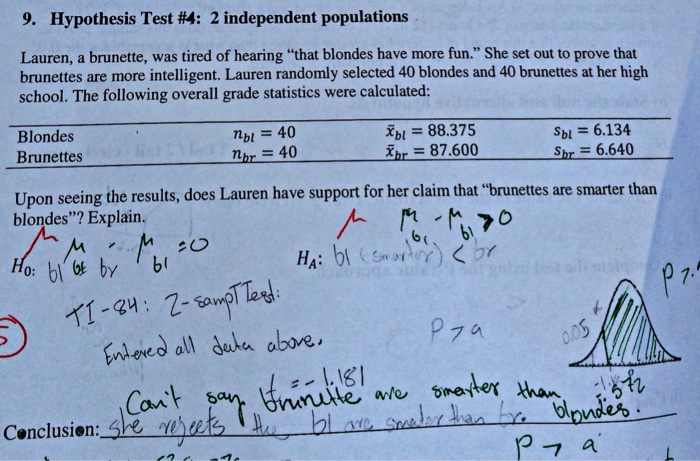 9. Hypothesis Test #4: 2 independent populations
Lauren, a brunette, was tired of hearing “that blondes have more fun.” She set out to prove that
brunettes are more intelligent. Lauren randomly selected 40 blondes and 40 brunettes at her high
school. The following overall grade statistics were calculated:
Blondes n_bl = 40 x̄_bl = 88.375 s_bl = 6.134
Brunettes n_br = 40 x̄_br = 87.600 s_br = 6.640
Upon seeing the results, does Lauren have support for her claim that “brunettes are smarter than
blondes”? Explain.
μ μ_br - μ_bl = 0 μ μ_br - μ_bl > 0
H₀: bl br HA: bl (smarter) < br
TI-84: 2-SampTTest:
Entered all data above.
P > a
0.05
t = -1.181
Can't say brunette are smarter than blondes.
Conclusion: she rejects the bl are smarter than br.
P > a